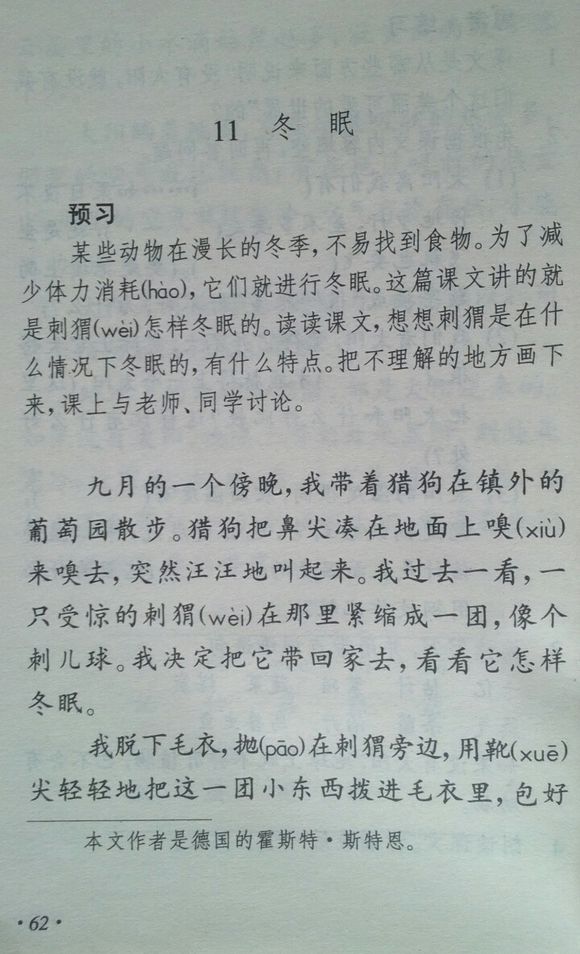 11 冬 眠
预习
某些动物在漫长的冬季，不易找到食物。为了减
少体力消耗(hào)，它们就进行冬眠。这篇课文讲的就
是刺猬(wèi)怎样冬眠的。读读课文，想想刺猬是在什
么情况下冬眠的，有什么特点。把不理解的地方画下
来，课上与老师、同学讨论。
九月的一个傍晚，我带着猎狗在镇外的
葡萄园散步。猎狗把鼻尖凑在地面上嗅(xiù)
来嗅去，突然汪汪地叫起来。我过去一看，一
只受惊的刺猬(wèi)在那里紧缩成一团，像个
刺儿球。我决定把它带回家去，看看它怎样
冬眠。
我脱下毛衣，抛(pāo)在刺猬旁边，用靴(xuē)
尖轻轻地把这一团小东西拨进毛衣里，包好
本文作者是德国的霍斯特·斯特恩。
·62·